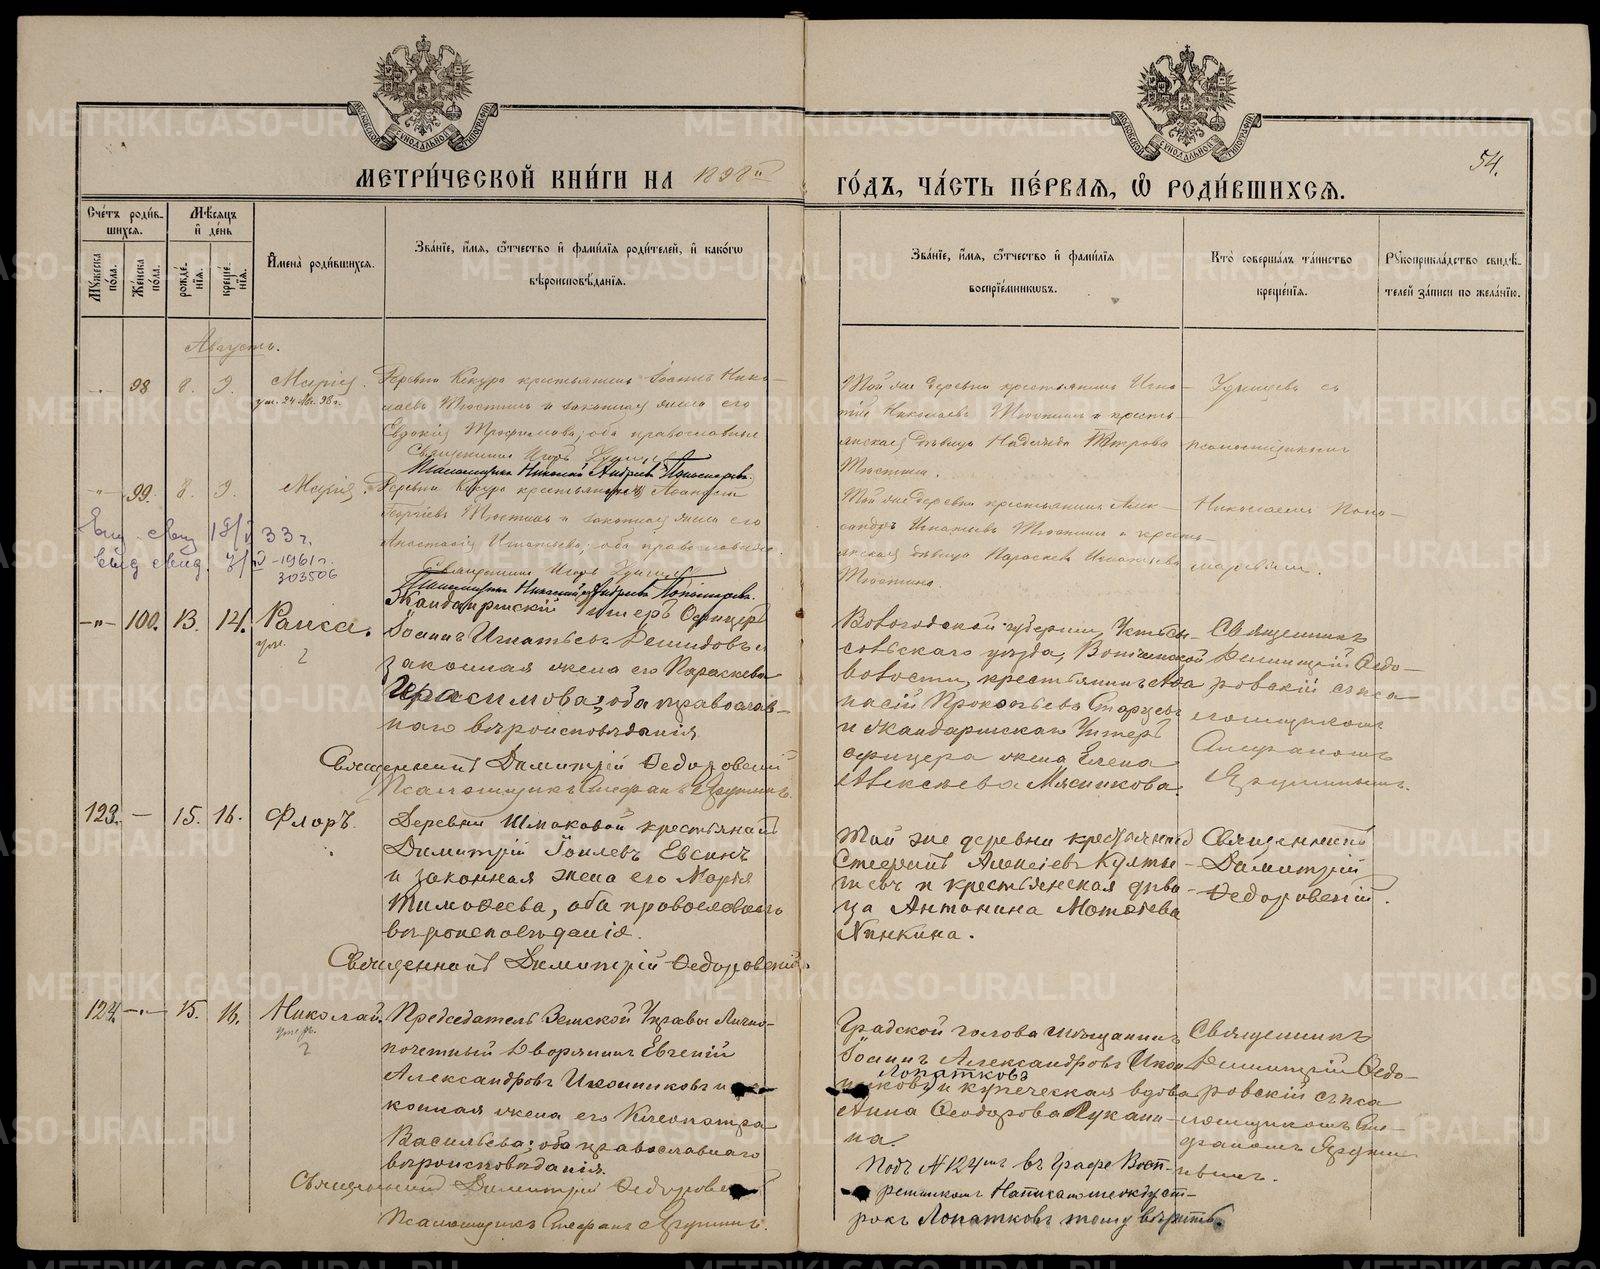 МЕТРИ́ЧЕСКОЙ КНИ́ГИ НА 1898й
ГО́ДЪ, ЧА́СТЬ ПЕ́РВАЯ, Ѡ РОДИ́ВШИХСЯ.
54.
Сче́тъ роди́в-
шихся.
Мѣ́сяцъ
и҆ де́нь
Му́жеска по́ла.
Же́нска по́ла.
рожде́-
нїя.
креще́-
нїя.
И҆мена̀ роди́вшихся.
Зва́нїе, и҆́мя, ѻ҆́тчество и҆ фами́лїя роди́телей, и҆ како́гѡ
вѣроисповѣ́данїя.
Зва́нїе, и҆́мя, ѻ҆́тчество и҆ фами́лїя
воспрїе́мниковъ.
Кто̀ соверша́лъ та́инство
креще́нїя.
Рукоприкла́дство свидѣ́-
телей за́писи по жела́нїю.
Августъ.
98 8. 9. Марія.
ум. 24
Деревни Кекура крестьянинъ Іоаннъ Нико-
лаевъ Тюстинъ и законная жена его
Евдокія Трофимова; оба православные
Священникъ Игорь
Псаломщикъ Николай Андреевъ Пономаревъ.
Той же деревни крестьянинъ Игна-
тій Николаевъ Тюстинъ и кресть-
янская дѣвица Надежда Петрова
Тюстина.
псаломщикомъ
99. 8. 9. Марія.
Деревни Кекура крестьянинъ
Георгіевъ Тюстинъ и законная жена его
Анастасія Игнатьева; оба православные.
Священникъ Игорь
Псаломщикъ Николай Андреевъ Пономаревъ.
Той же деревни крестьянинъ Алек-
сандръ Игнатьевъ Тюстинъ и кресть-
янская дѣвица Параскева Игнатьева
Тюстина.
Николаемъ Поно-
маревымъ.
18/V 33 г.
выд свид 7/IV -1961 г.
303506
—"— 100. 13. 14. Раиса.
ум.
2
Жандармскій Унтеръ Офицеръ
Іоаннъ Игнатьевъ Демидовъ и
законная жена его Параскева
Герасимова; оба православ-
наго вѣроисповѣданія
Священникъ Димитрій Ѳедоровскій
Псаломщикъ Стефанъ Ягушинъ.
Вологодской губерніи, Устьсы-
сольскаго уѣзда, Вотчинской
волости, крестьянинъ Аѳа
насій Прокопьевъ Старцевъ
и жандармскаго Унтеръ
офицера жена Елена
Алексѣева Мясникова.
Священникъ
Димитрій Ѳедо-
ровскій съ пса-
ломщикомъ
Стефаномъ
Ягушинымъ.
123. — 15. 16. Флоръ.
Деревни Шмаковой крестьянинъ
Димитрій Іоилевъ Евсинъ
и законная жена его Марѳа
Тимоѳеева, оба православнаго
вѣроисповѣданія.
Священникъ Димитрій Ѳедоровскій.
Той же деревни крестьянинъ
Стефанъ Алексіевъ Култы-
шевъ и крестьянская дѣви-
ца Антонина Матвѣева
Пинкина.
Священникъ
Димитрій
Ѳедоровскій.
124. —"— 15. 16. Николай.
умеръ.
2
Предсѣдатель Земской Управы Лично-
почетный Дворянинъ Евгеній
Александровъ Иконниковъ и за-
конная жена его Клеопатра
Васильева; оба православнаго
вѣроисповѣданія.
Священникъ Димитрій Ѳедоровскій
Псаломщикъ Стефанъ Ягушинъ.
Градской голова мѣщанинъ
Іоаннъ Александровъ Икон-
Лопатковъ
никовъ и купеческая вдова
Анна Ѳеодорова Лукани-
на.
Подъ №124мъ въ графѣ Восп-
реемникомъ написано между ст-
рокъ Лопатковъ тому вѣрить.
Священникъ
Димитрій Ѳедо-
ровскій съ пса
ломщикомъ Сте-
фаномъ Ягуши-
нымъ.